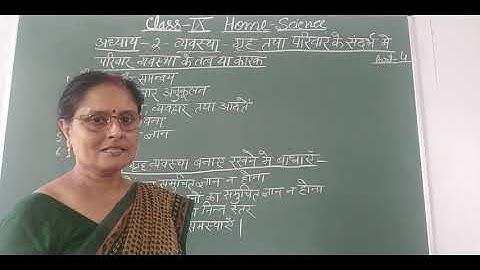 Class-IX Home-Science
अध्याय-2-व्यवस्था गृह तथा परिवार के संदर्भ में
परिवार व्यवस्था के तत्व या कारक
समन्वय
अनुकूलन
व्यवहार तथा आदतें
ज्ञान
गृह व्यवस्था बनाए रखने में बाधाएँ-
समुचित ज्ञान न होना
का समुचित ज्ञान न होना
निम्न स्तर
समस्याएँ।